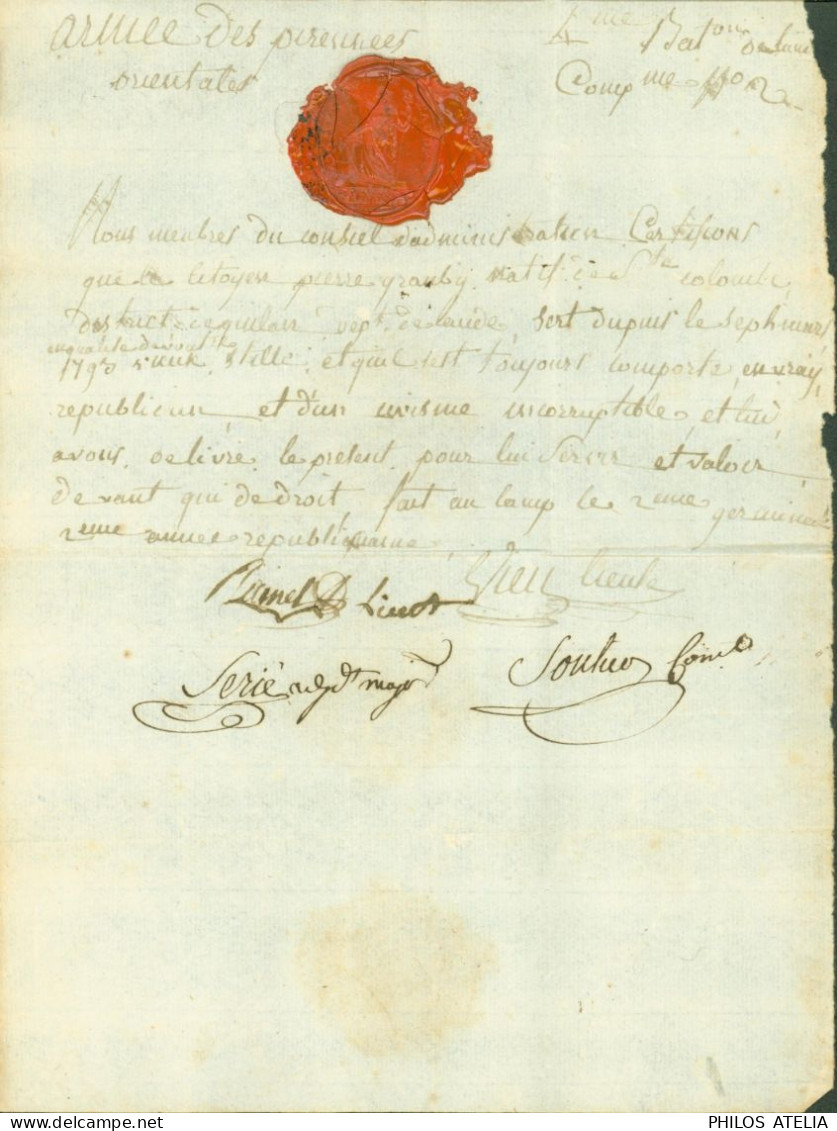 armee des pirennees
orientales
4me Baton de laude
Comp me No 2
Nous menbres du consiel d'administration Certifions
que le citoyen pierre granby natif de Ste colombe
district de quilan dept de laude, sert dupuis le 
en qualite de
1793 vieux stille, et quil sest toujours comporte en vray
republicun, et d'un civisme incorruptible, et lui
avons delivre le present pour lui servir et valoir
devant qui de droit fait au camp le 2eme germinal
2eme annee republiquaine
Serié adjdt major